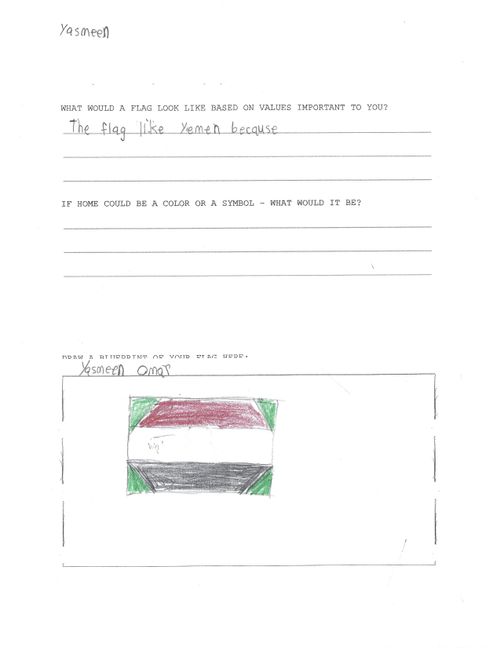 Yasmeen
WHAT WOULD A FLAG LOOK LIKE BASED ON VALUES IMPORTANT TO YOU?
The flag like Yemen because
IF HOME COULD BE A COLOR OR A SYMBOL - WHAT WOULD IT BE?
DRAW A BLUEPRINT OF YOUR FLAG HERE:
Yasmeen Omar